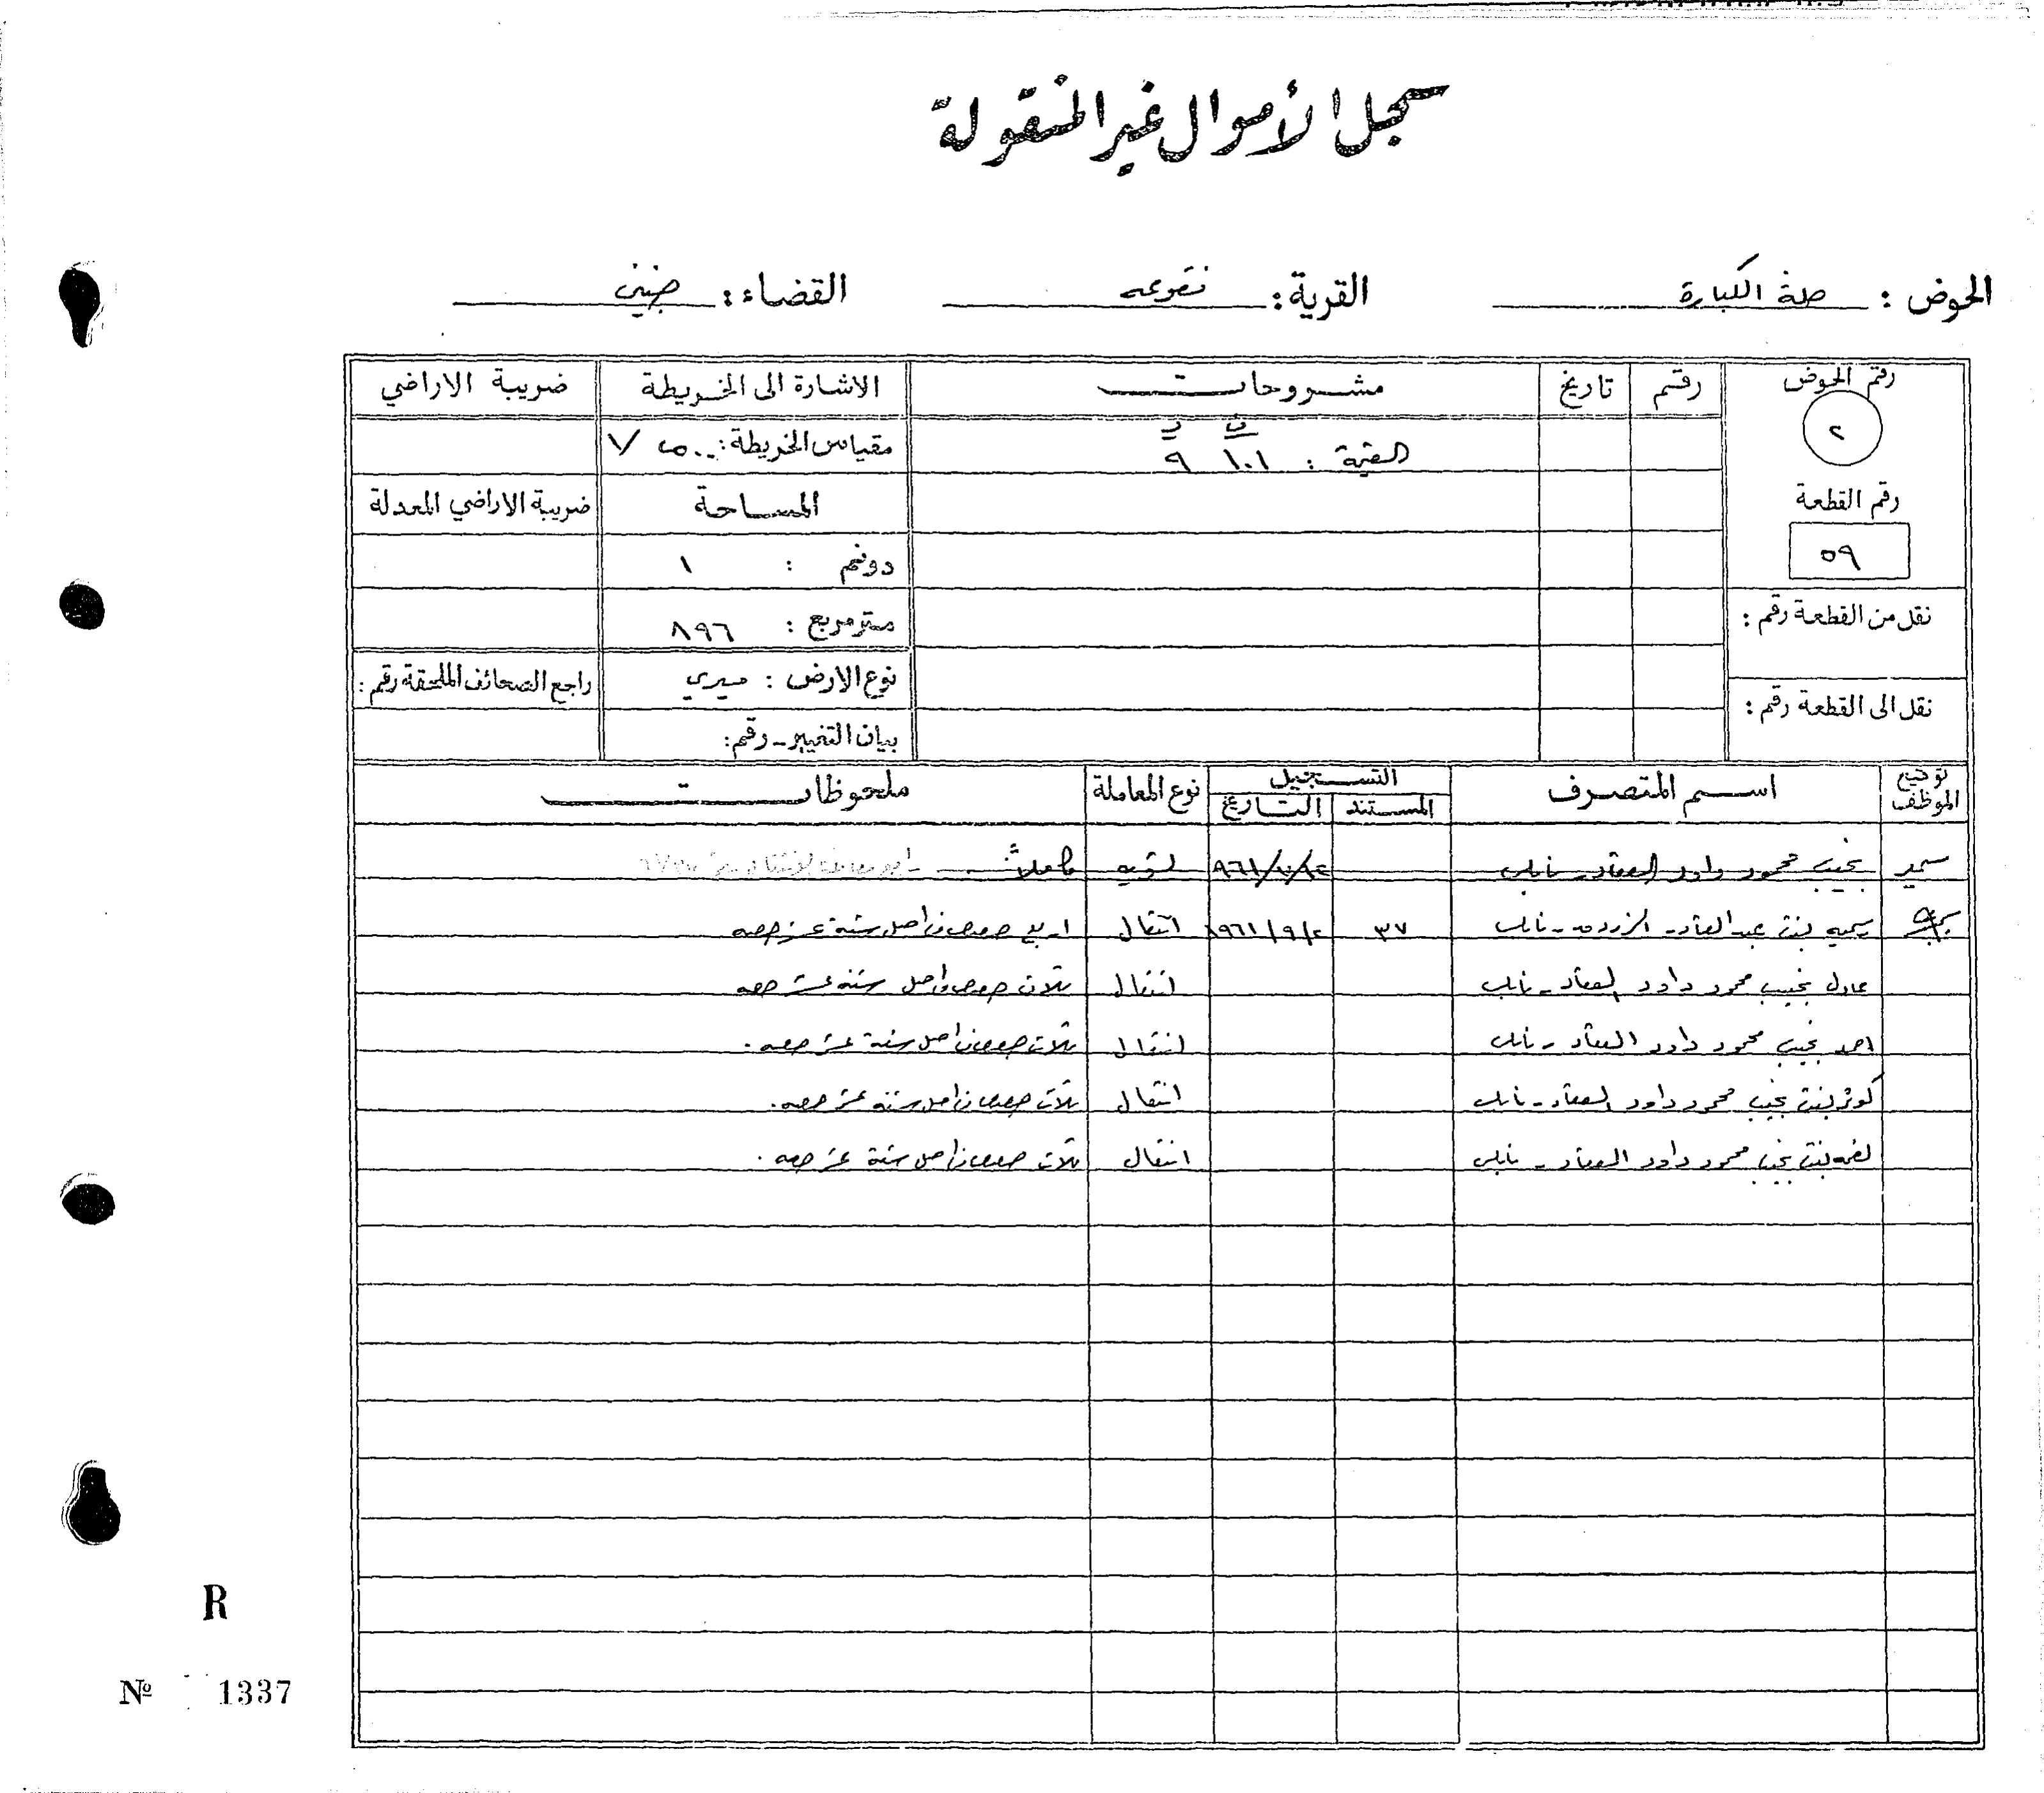 سجل الأموال غير المنقولة
الحوض : الكبارة القرية : القضاء : جنين
رقم الحوض رقم تاريخ مشروحات الاشارة الى الخريطة ضريبة الاراضي
٢ القيمة : ١٠١ ٩ مقياس الخريطة :
رقم القطعة المساحة ضريبة الاراضي المعدلة
٥٩ دونم : ١
نقل من القطعة رقم : متر مربع : ٨٩٦
نوع الارض : ميري راجع الصحائف الملحقة رقم :
نقل الى القطعة رقم : بيان التغيير - رقم :
توقيع الموظف اسم المتصرف التسجيل نوع المعاملة ملحوظات
المستند التاريخ
سمير نجيب محمود داود العقاد - نابلس تسويه كاملاً
بنت عبد القادر - نابلس ٣٧ ١٩٦١/٩/٢ انتقال اربع حصص من اصل ستة عشر حصه
عادل نجيب محمود داود العقاد - نابلس انتقال ثلاث حصص من اصل ستة عشر حصه
احمد نجيب محمود داود العقاد - نابلس انتقال ثلاث حصص من اصل ستة عشر حصه .
كوثر بنت نجيب محمود داود العقاد - نابلس انتقال ثلاث حصص من اصل ستة عشر حصه .
بنت نجيب محمود داود العقاد - نابلس انتقال ثلاث حصص من اصل ستة عشر حصه .
R
№ 1337